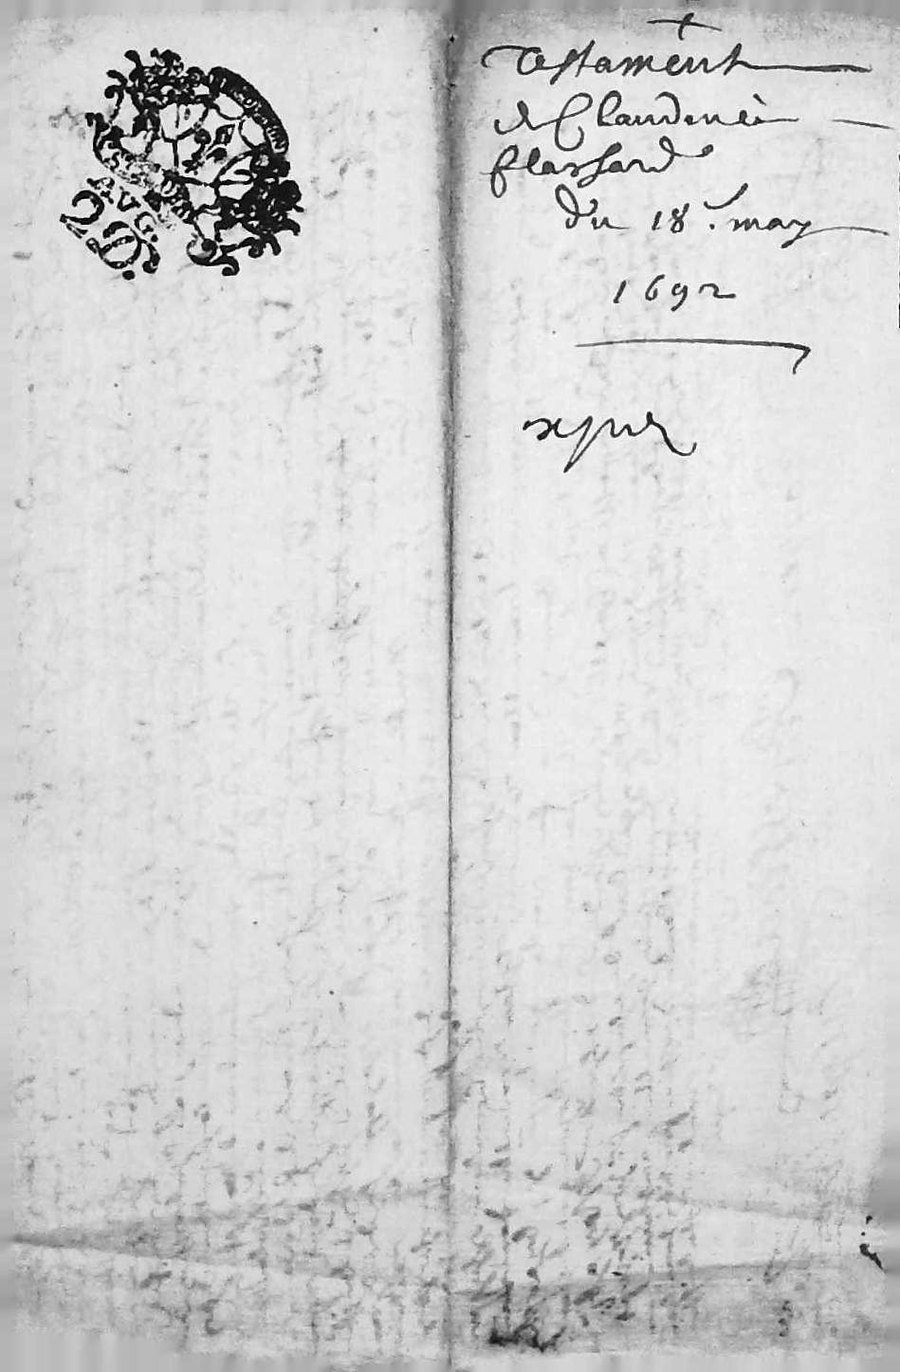 AVG.
20.
Testament
de Claudine
flassard
du 18. may
1692
expié